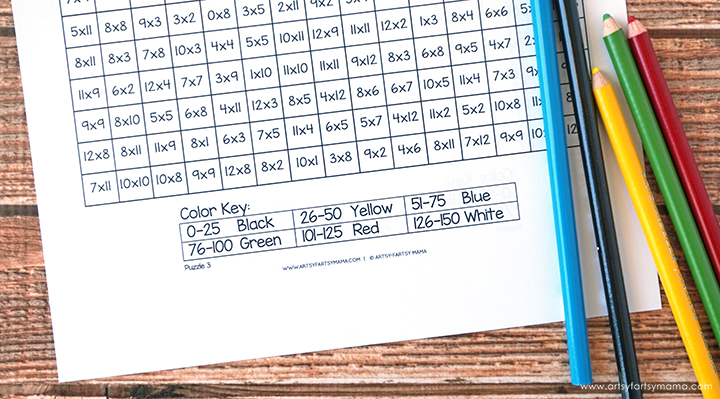 5x11 8x8 9x3 3x2 0x8 3x5 2x11 9x2
8x11 8x3 7x8 10x3 4x4 5x5 10x11 12x9 11x3 12x2 1x3 8x4 6x6
11x9 6x2 12x4 7x7 3x9 1x10 11x10 11x11 9x12 8x3 6x8 9x5 4x7
9x9 8x10 5x5 6x8 4x11 12x3 8x5 4x12 8x6 6x7 10x5 11x4 7x3
12x8 8x11 11x9 8x1 6x3 7x5 11x4 6x5 5x7 4x12 11x2 5x2 10x8
7x11 10x10 10x8 9x9 12x8 8x2 10x1 3x8 9x2 4x6 8x11 7x12 9x9
Color Key:
0-25 Black 26-50 Yellow 51-75 Blue
76-100 Green 101-125 Red 126-150 White
Puzzle 3
WWW.ARTSYFARTSYMAMA.COM | © ARTSY-FARTSY MAMA
www.artsyfartsymama.com